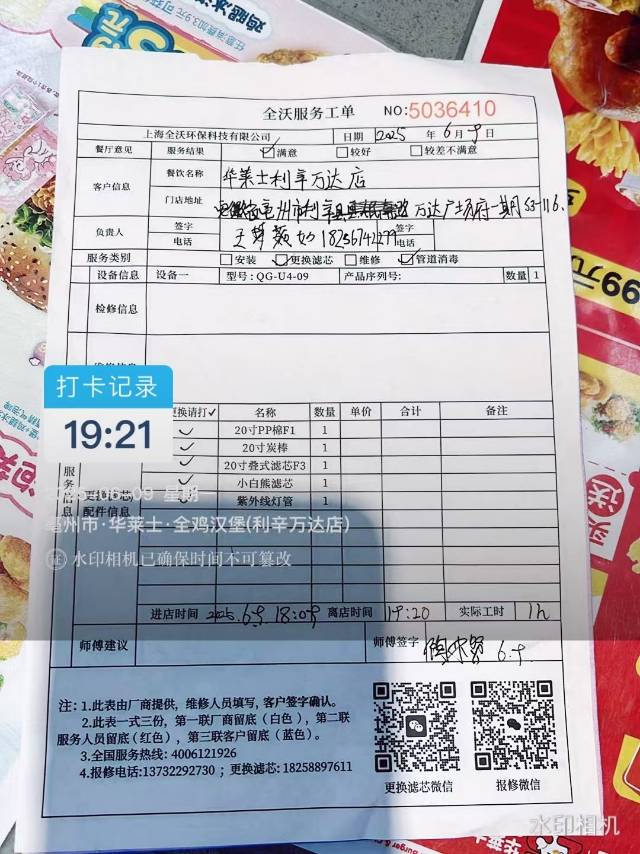 全沃服务工单 NO:5036410
上海全沃环保科技有限公司 日期 2025 年 6 月 9 日
餐厅意见 服务结果 ☑满意 □较好 □较差不满意
客户信息 餐饮名称 华莱士利辛万达店
门店地址 亳州市利辛县 万达广场府一期S3-116
负责人 签字 签字
电话 18256742279 电话
服务类别 □安装 ☑更换滤芯 □维修 ☑管道消毒
设备信息 设备一 型号: QG-U4-09 产品序列号: 数量 1
检修信息
打卡记录
19:21
更换请打✓ 名称 数量 单价 合计 备注
✓ 20寸PP棉F1 1
✓ 20寸炭棒 1
✓ 20寸叠式滤芯F3 1
✓ 小白熊滤芯 1
✓ 紫外线灯管 1
服务信息
配件信息
2025-06-09 星期
亳州市·华莱士·全鸡汉堡(利辛万达店)
水印相机已确保时间不可篡改
进店时间 2025.6.9 18:09 离店时间 19:20 实际工时 1h
师傅建议 师傅签字 6.9.
注: 1.此表由厂商提供，维修人员填写, 客户签字确认。
2.此表一式三份，第一联厂商留底(白色)，第二联
服务人员留底(红色)，第三联客户留底(蓝色)。
3.全国服务热线: 4006121926
4.报修电话:13732292730 ; 更换滤芯: 18258897611
更换滤芯微信 报修微信
水印相机